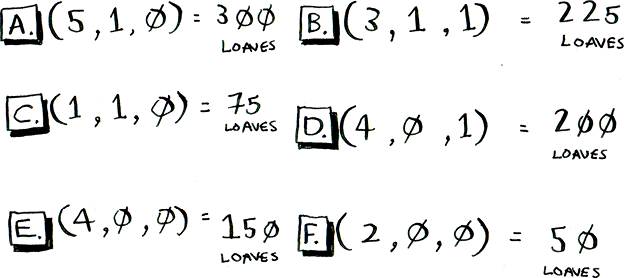 A. (5,1,0) = 300 LOAVES
B. (3,1,1) = 225 LOAVES
C. (1,1,0) = 75 LOAVES
D. (4,0,1) = 200 LOAVES
E. (4,0,0) = 150 LOAVES
F. (2,0,0) = 50 LOAVES